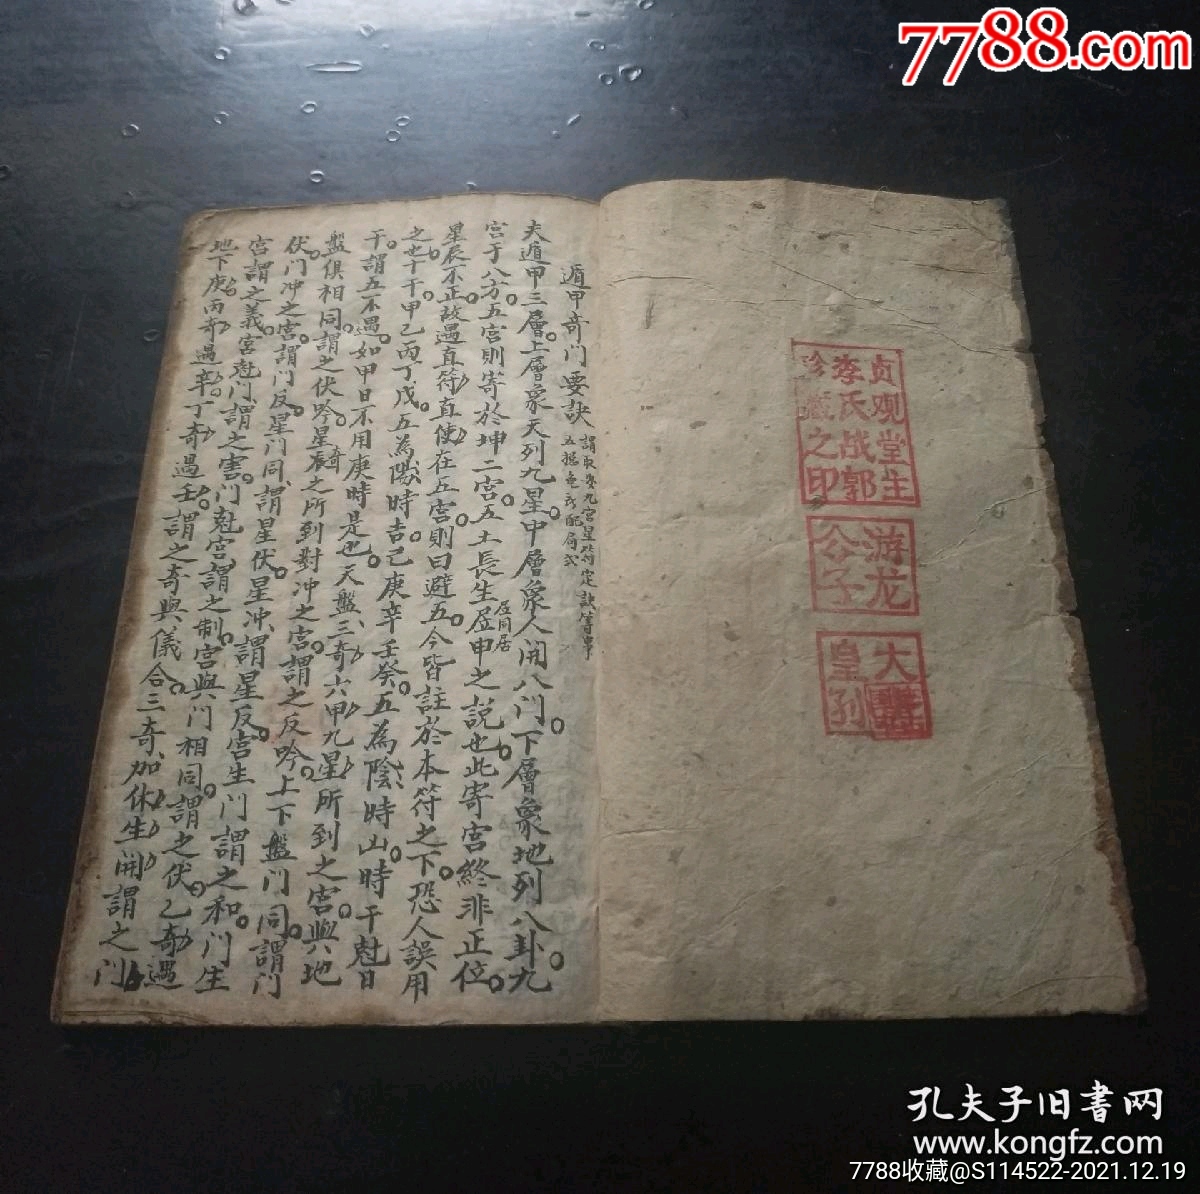 7788.com
遁甲奇門要訣
謂取客九宮星符定訣等事
夫遁甲三層上層象天列九星中層象人開八門下層象地列八卦九
宮于八方五宮則寄於坤二宮五土長生居申之說也此寄宮終非正位
星辰不正故遇直符直使在五宮則曰避五今皆註於本符之下恐人誤用
之也十干甲乙丙丁戊五為陽時吉己庚辛壬癸五為陰時山時干尅日
干謂五不遇如甲日不用庚時是也天盤三奇六甲九星所到之宮與地
盤俱相同謂之伏吟星辰之所到對冲之宮謂之反吟上下盤門同謂門
伏門冲之宮謂門反星門同謂星伏星冲謂星反宮生門謂之和門生
宮謂之義宮尅門謂之害門尅宮謂之制宮與門相同謂之伏乙奇遇
地下庚丙奇遇辛丁奇遇壬謂之奇與儀合三奇加休生開謂之門
贞观堂主
李氏战郭
珍藏之印
游龙
公子
大
皇孙
孔夫子旧書网
www.kongfz.com
7788收藏@S114522-2021.12.19